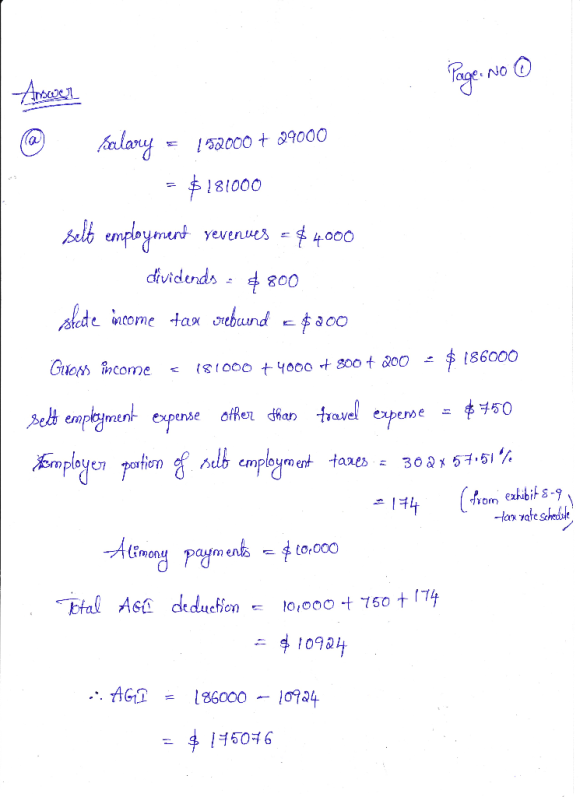 Page. NO ①
Answer
ⓐ Salary = 152000 + 29000
= $ 181000
Self employment revenues = $ 4000
dividends = $ 800
state income tax rebund = $ 200
Gross income = 181000 + 4000 + 800 + 200 = $ 186000
Self employment expense other than travel expense = $ 750
Employer portion of self employment taxes = 302 x 57.51 %
= 174 (from exhibit 8-9
-tax rate schedule)
Alimony payments = $ 10,000
Total AGI deduction = 10,000 + 750 + 174
= $ 10924
∴ AGI = 186000 - 10924
= $ 175076